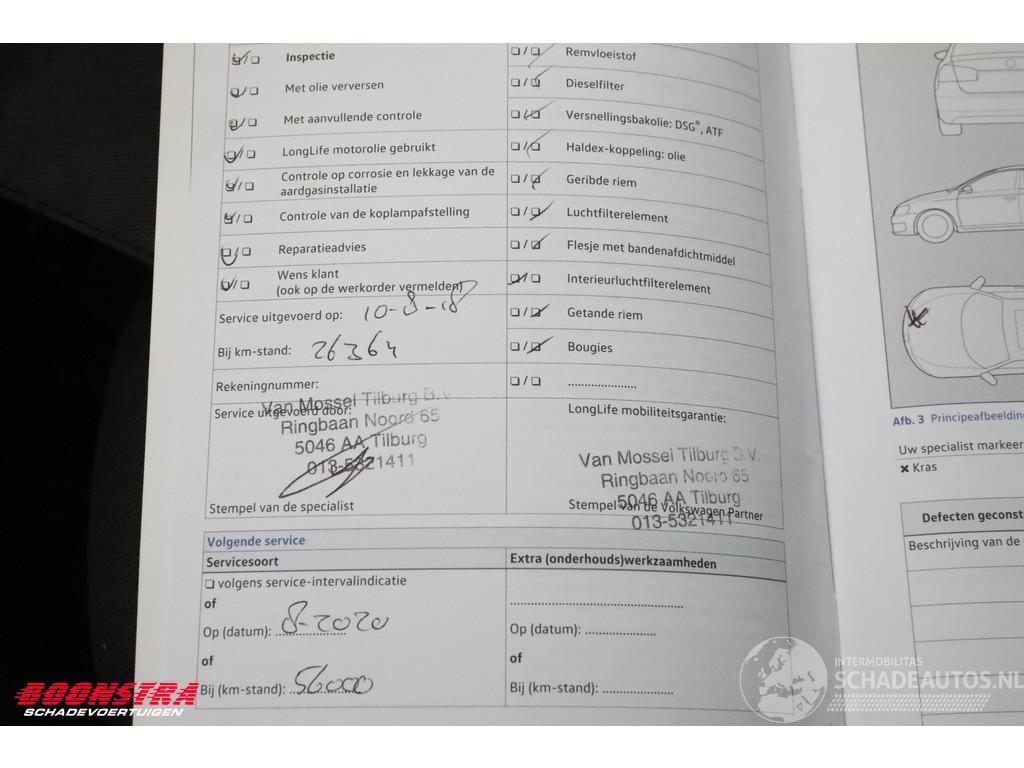 Inspectie
Met olie verversen
Met aanvullende controle
LongLife motorolie gebruikt
Controle op corrosie en lekkage van de
aardgasinstallatie
Controle van de koplampafstelling
Reparatieadvies
Wens klant
(ook op de werkorder vermelden)
Service uitgevoerd op: 10-8-18
Bij km-stand: 26364
Rekeningnummer:
Service uitgevoerd door:
Van Mossel Tilburg B.V.
Ringbaan Noord 65
5046 AA Tilburg
013-5321411
Stempel van de specialist
Remvloeistof
Dieselfilter
Versnellingsbakolie: DSG®, ATF
Haldex-koppeling: olie
Geribde riem
Luchtfilterelement
Flesje met bandenafdichtmiddel
Interieurluchtfilterelement
Getande riem
Bougies
......................
LongLife mobiliteitsgarantie:
Van Mossel Tilburg B.V.
Ringbaan Noord 65
5046 AA Tilburg
Stempel van de Volkswagen Partner
013-5321411
Volgende service
Servicesoort
volgens service-intervalindicatie
of
Op (datum): 8-2020
of
Bij (km-stand): 56000
Extra (onderhouds)werkzaamheden
Op (datum): ......................
of
Bij (km-stand): ......................
Afb. 3 Principeafbeelding
Uw specialist markeer
Kras
Defecten geconst
Beschrijving van de
BOONSTRA
SCHADEVOERTUIGEN
INTERMOBILITAS
SCHADEAUTOS.NL